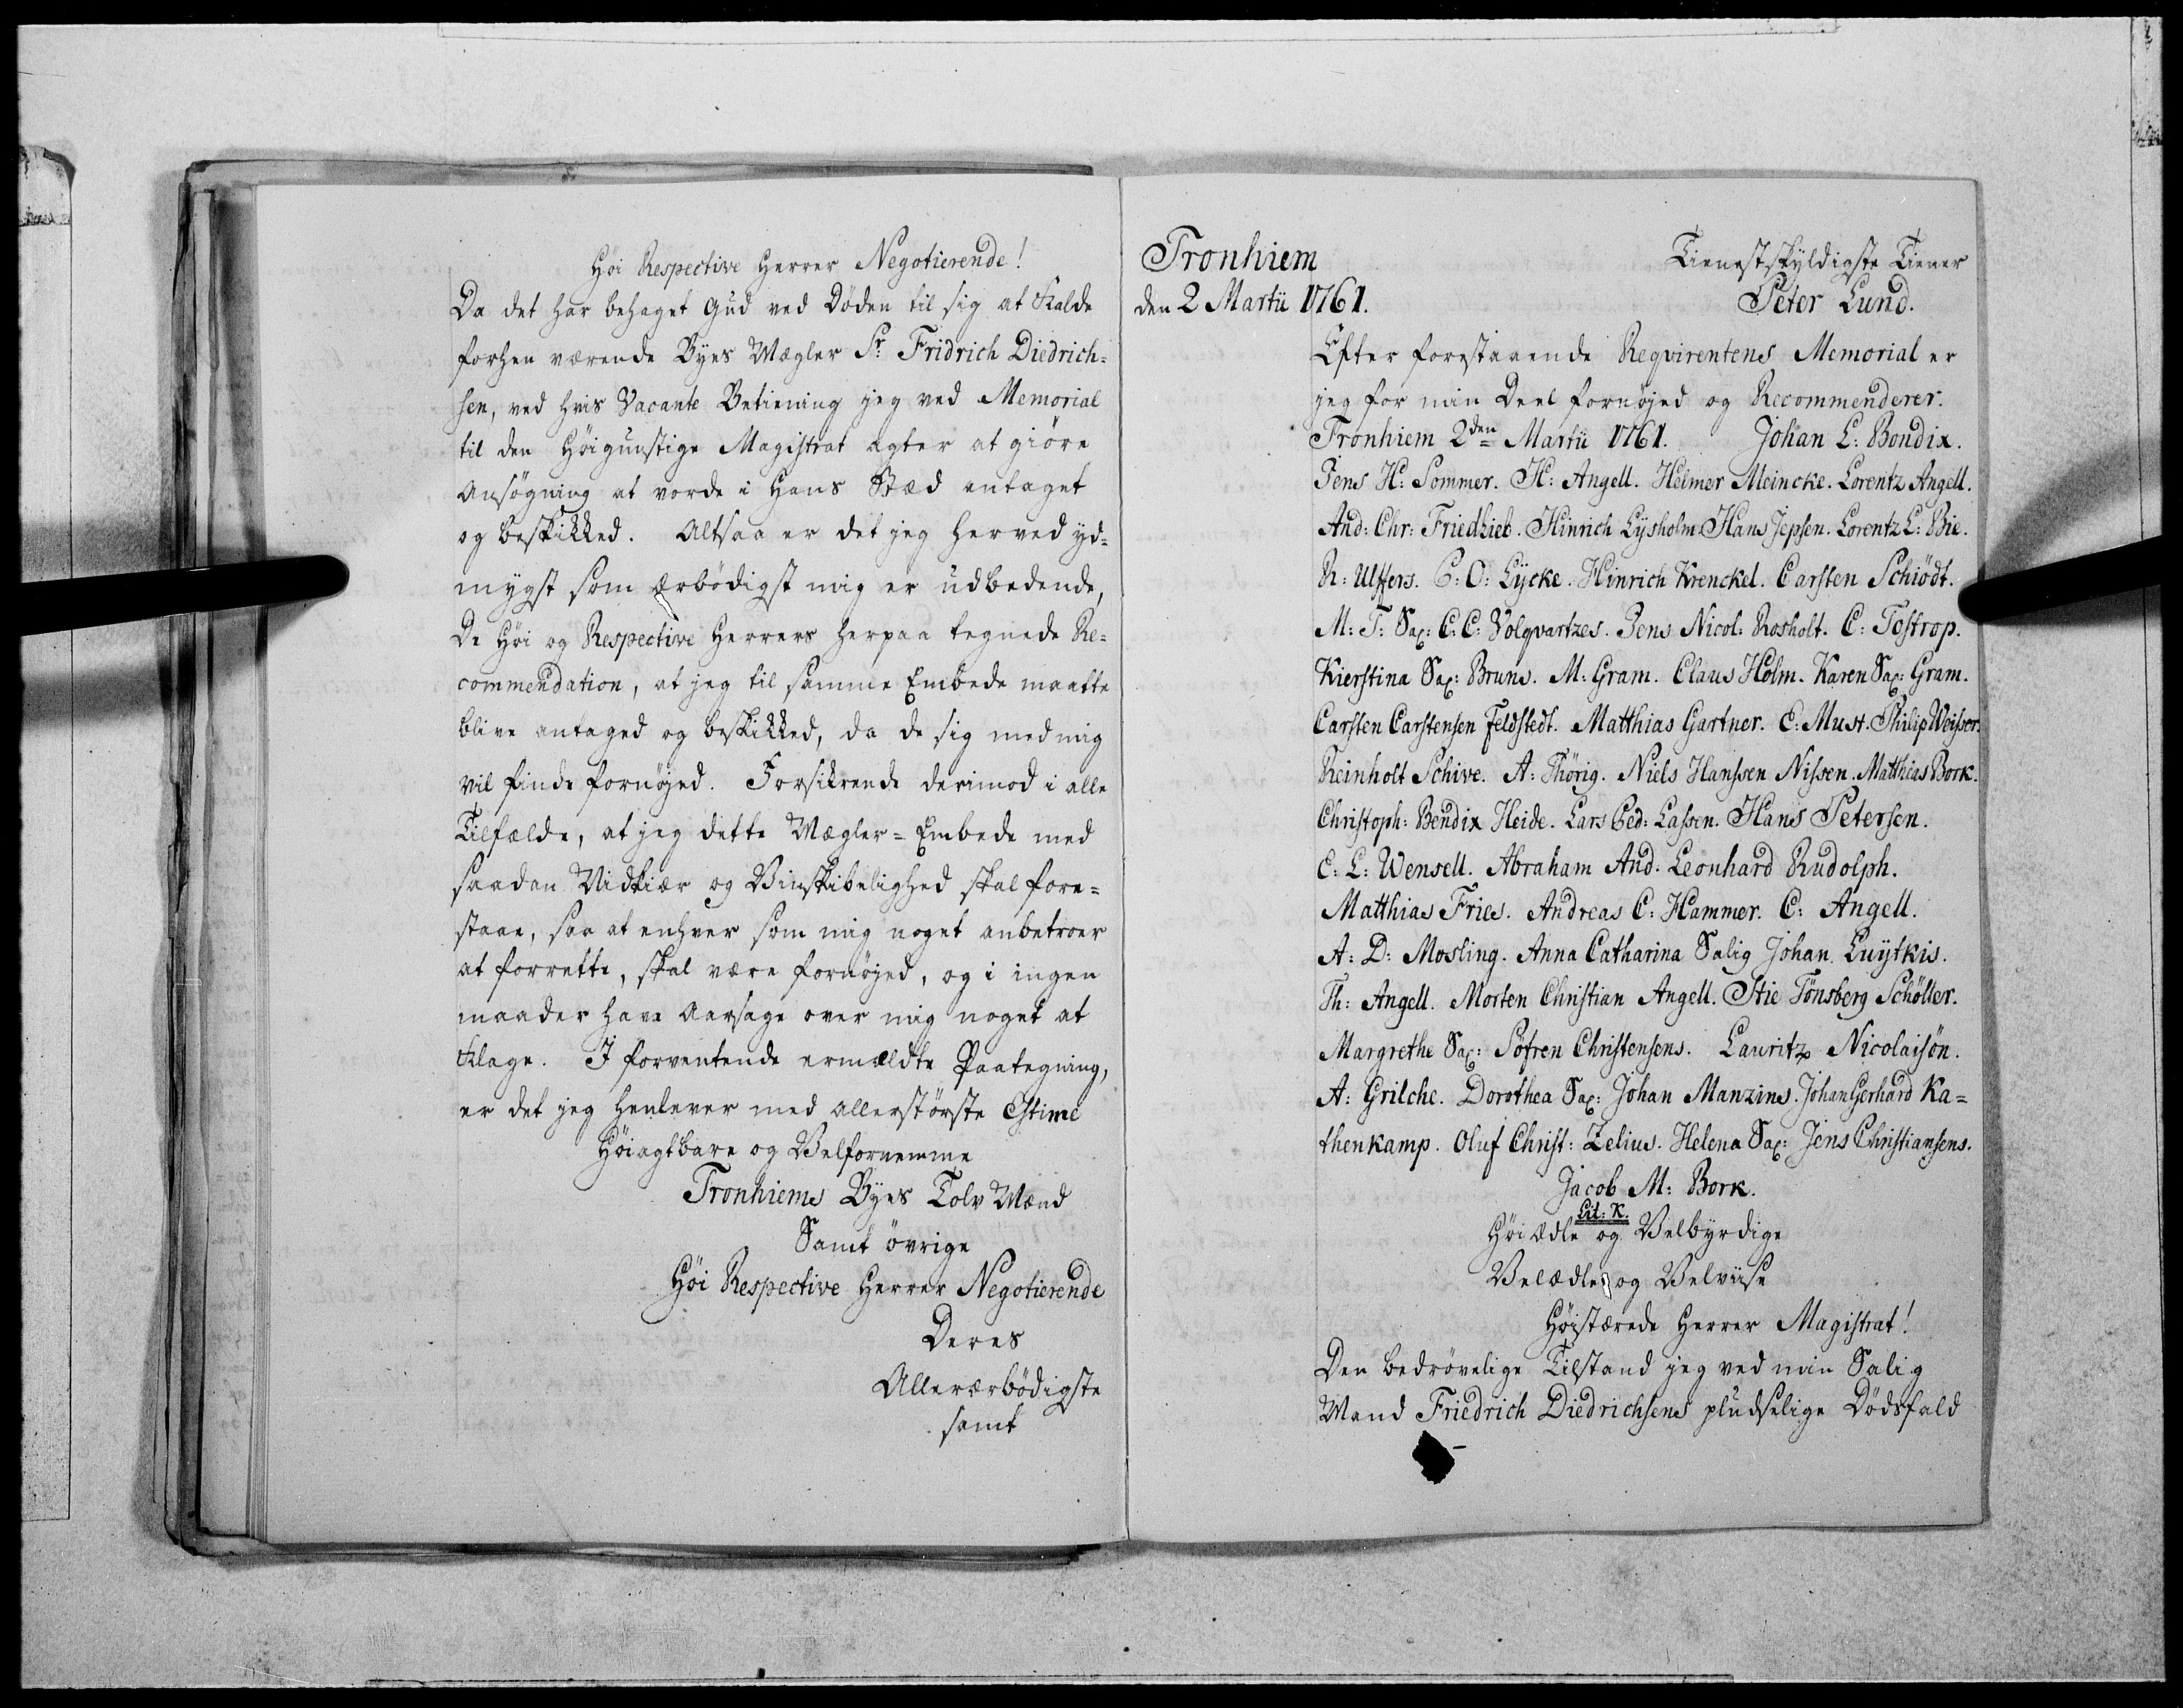 Høi Respective Herrer Negotierende!
Da det har behaget Gud ved Døden til sig at Kalde
forhen værende Byes Mægler Sr. Fridrich Diedrich-
sen, ved hvis Vacante Betiening jeg ved Memorial
til den Høigunstige Magistrat agter at giøre
Ansøgning at vorde i Hans Stæd antaget
og beskikked. Altsaa er det jeg herved yd-
mygst som ærbödigst mig er udbedende,
De Høi og Respective Herrers herpaa tegnede Re-
commendation, at jeg til samme Embede maatte
blive antaged og beskikked, da de sig med mig
vil finde fornøjed. Forsikrende derimod i alle
Tilfælde, at jeg dette Mægler-Embede med
saadan Nidkiær og Vinskibelighed skal fore-
staae, saa at enhver som mig noget anbetroer
at forrette, skal være fornøjed, og i ingen
maader have Aarsage over mig noget at
Klage. I forventende ermældte Paategning,
er det jeg henlever med allerstørste Estime
Høiagtbare og Velfornemme
Tronhiems Byes Tolv Mænd
Samt øvrige
Høi Respective Herrer Negotierende
Deres
Allerærbödigste
samt
Tronhiem
den 2 Martii 1761.
Tienestskyldigste Tiener
Peter Lund.
Efter forestaaende Reqvirentens Memorial er
jeg for min Deel fornøjed og Recommenderer.
Tronhiem 2den Martii 1761. Johan L: Bendix.
Jens H: Sommer. H: Angell. Helmer Meincke. Lorentz Angell.
And: Chr: Friedlieb. Hinrich Lysholm. Hans Jepsen. Lorentz L: Bie.
R: Ulffers. C: O: Lycke. Hinrich Krenckel. Carsten Schiødt.
M: T: Sal: C: C: Volqvartzes. Jens Nicol: Rosholt. C: Tostrop.
Kierstina Sal: Bruns. M: Gram. Claus Holm. Karen Sal: Gram.
Carsten Carstensen Feldstedt. Matthias Gartner. E: Must. Philip Weisser.
Reinholt Schive. A: Thörig. Niels Hanssen Nissen. Matthias Bork.
Christoph: Bendix Heide. Lars Ged: Lassen. Hans Petersen.
E: L: Wensell. Abraham And. Leonhard Rudolph.
Matthias Fries. Andreas C: Hammer. C: Angell.
A: D: Mosling. Anna Catharina Salig Johan Luytkis.
Th: Angell. Morten Christian Angell. Stie Tønsberg Schøller.
Margrethe Sal: Söfren Christensens. Lauritz Nicolaisøn.
A: Grilche. Dorothea Sal: Johan Manzins. Johan Gerhard Ka-
thenkamp. Oluf Christ: Zelius. Helena Sal: Jens Christiansens.
Jacob M: Bork.
Lit: K.
Høi Ædle og Velbyrdige
Velædle og Velviise
Høistærede Herrer Magistrat!
Den bedrøvelige Tilstand jeg ved min Salig
Mand Friedrich Diedrichsens pludselige Dödsfald